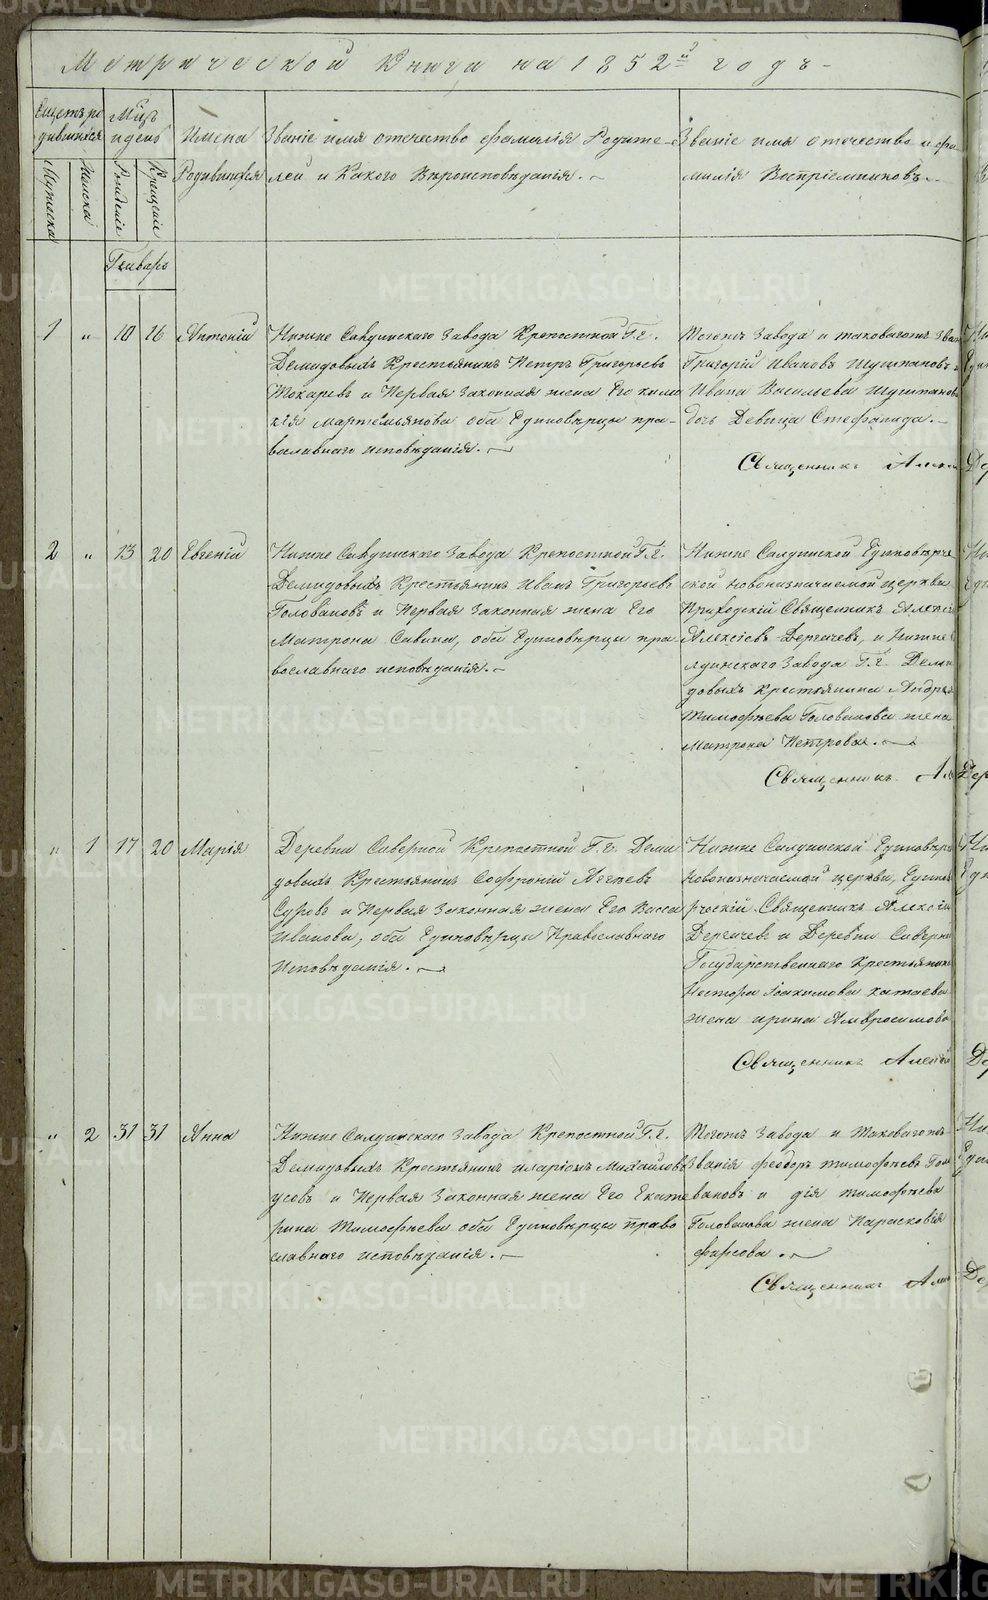 Метрической Книга на 1852й годъ
Счетъ ро
дившихся
Мцъ
и день
Имена
Родившихся
Званіе имя отечество фамилія Родите-
лей и Какого Вѣроисповѣданія.
Званіе имя отечество и фа
милія Воспріемниковъ.
Мужеска
Женска
Рожденіе
Крещеніе
Генварь
1 " 10 16 Антоній
Нижне Салдинскаго Завода Крепостной Г.г.
Демидовыхъ Крестьянинъ Петръ Григорьевъ
Токаревъ и Первая Законная жена Его
Мартемьянова оба Единовѣрцы пра-
вославнаго исповѣданія.
Тогожъ Завода и таковагожъ Зван
Григорій Ивановъ
Ивана Васильева
дочь Девица Стефанида.
Священникъ Алек
2 " 13 20 Евгеній
Нижне Салдинскаго Завода Крепостной Г.г.
Демидовыхъ Крестьянинъ Иванъ Григорьевъ
Головановъ и Первая Законная жена Его
Матрона Савина, оба Единовѣрцы пра-
вославнаго исповѣданія.
Нижне Салдинской Единовѣрче
ской новоназначаемой церкви
Приходскій Священникъ Алексій
Алексіевъ Дергачевъ, и Нижне С
лдинскаго Завода Г.г. Деми
довыхъ крестьянина Андрея
Тимофѣева Голованова жена
Матрона Петрова.
Священникъ Ал
" 1 17 20 Марія
Деревни Северной Крепостной Г.г. Деми
довыхъ Крестьянинъ Софроній
Суровъ и Первая Законная жена Его Васса
Иванова, оба Единовѣрцы Православнаго
Исповѣданія.
Нижне Салдинской Единовѣрч
новоназначаемой церкви, Единов
рческій Священникъ Алексій
Дергачевъ и Деревни Северно
Государственнаго Крестьянина
Нестора Іоакимова катаева
жена ирина Амвросимова
Священникъ Алексій
" 2 31 31 Анна
Нижне Салдинскаго Завода Крепостной Г.г.
Демидовыхъ Крестьянинъ иларіонъ Михайловъ
усовъ и Первая Законная жена Его Екате
рина Тимофѣева оба Единовѣрцы право
славнаго исповѣданія.
Тогожъ Завода и Таковагожъ
Званія феодоръ тимофѣевъ Гол
вановъ и тимофѣева
Голованова жена Парасковія
фирсова.
Священникъ Але
METRIKI.GASO-URAL.RU